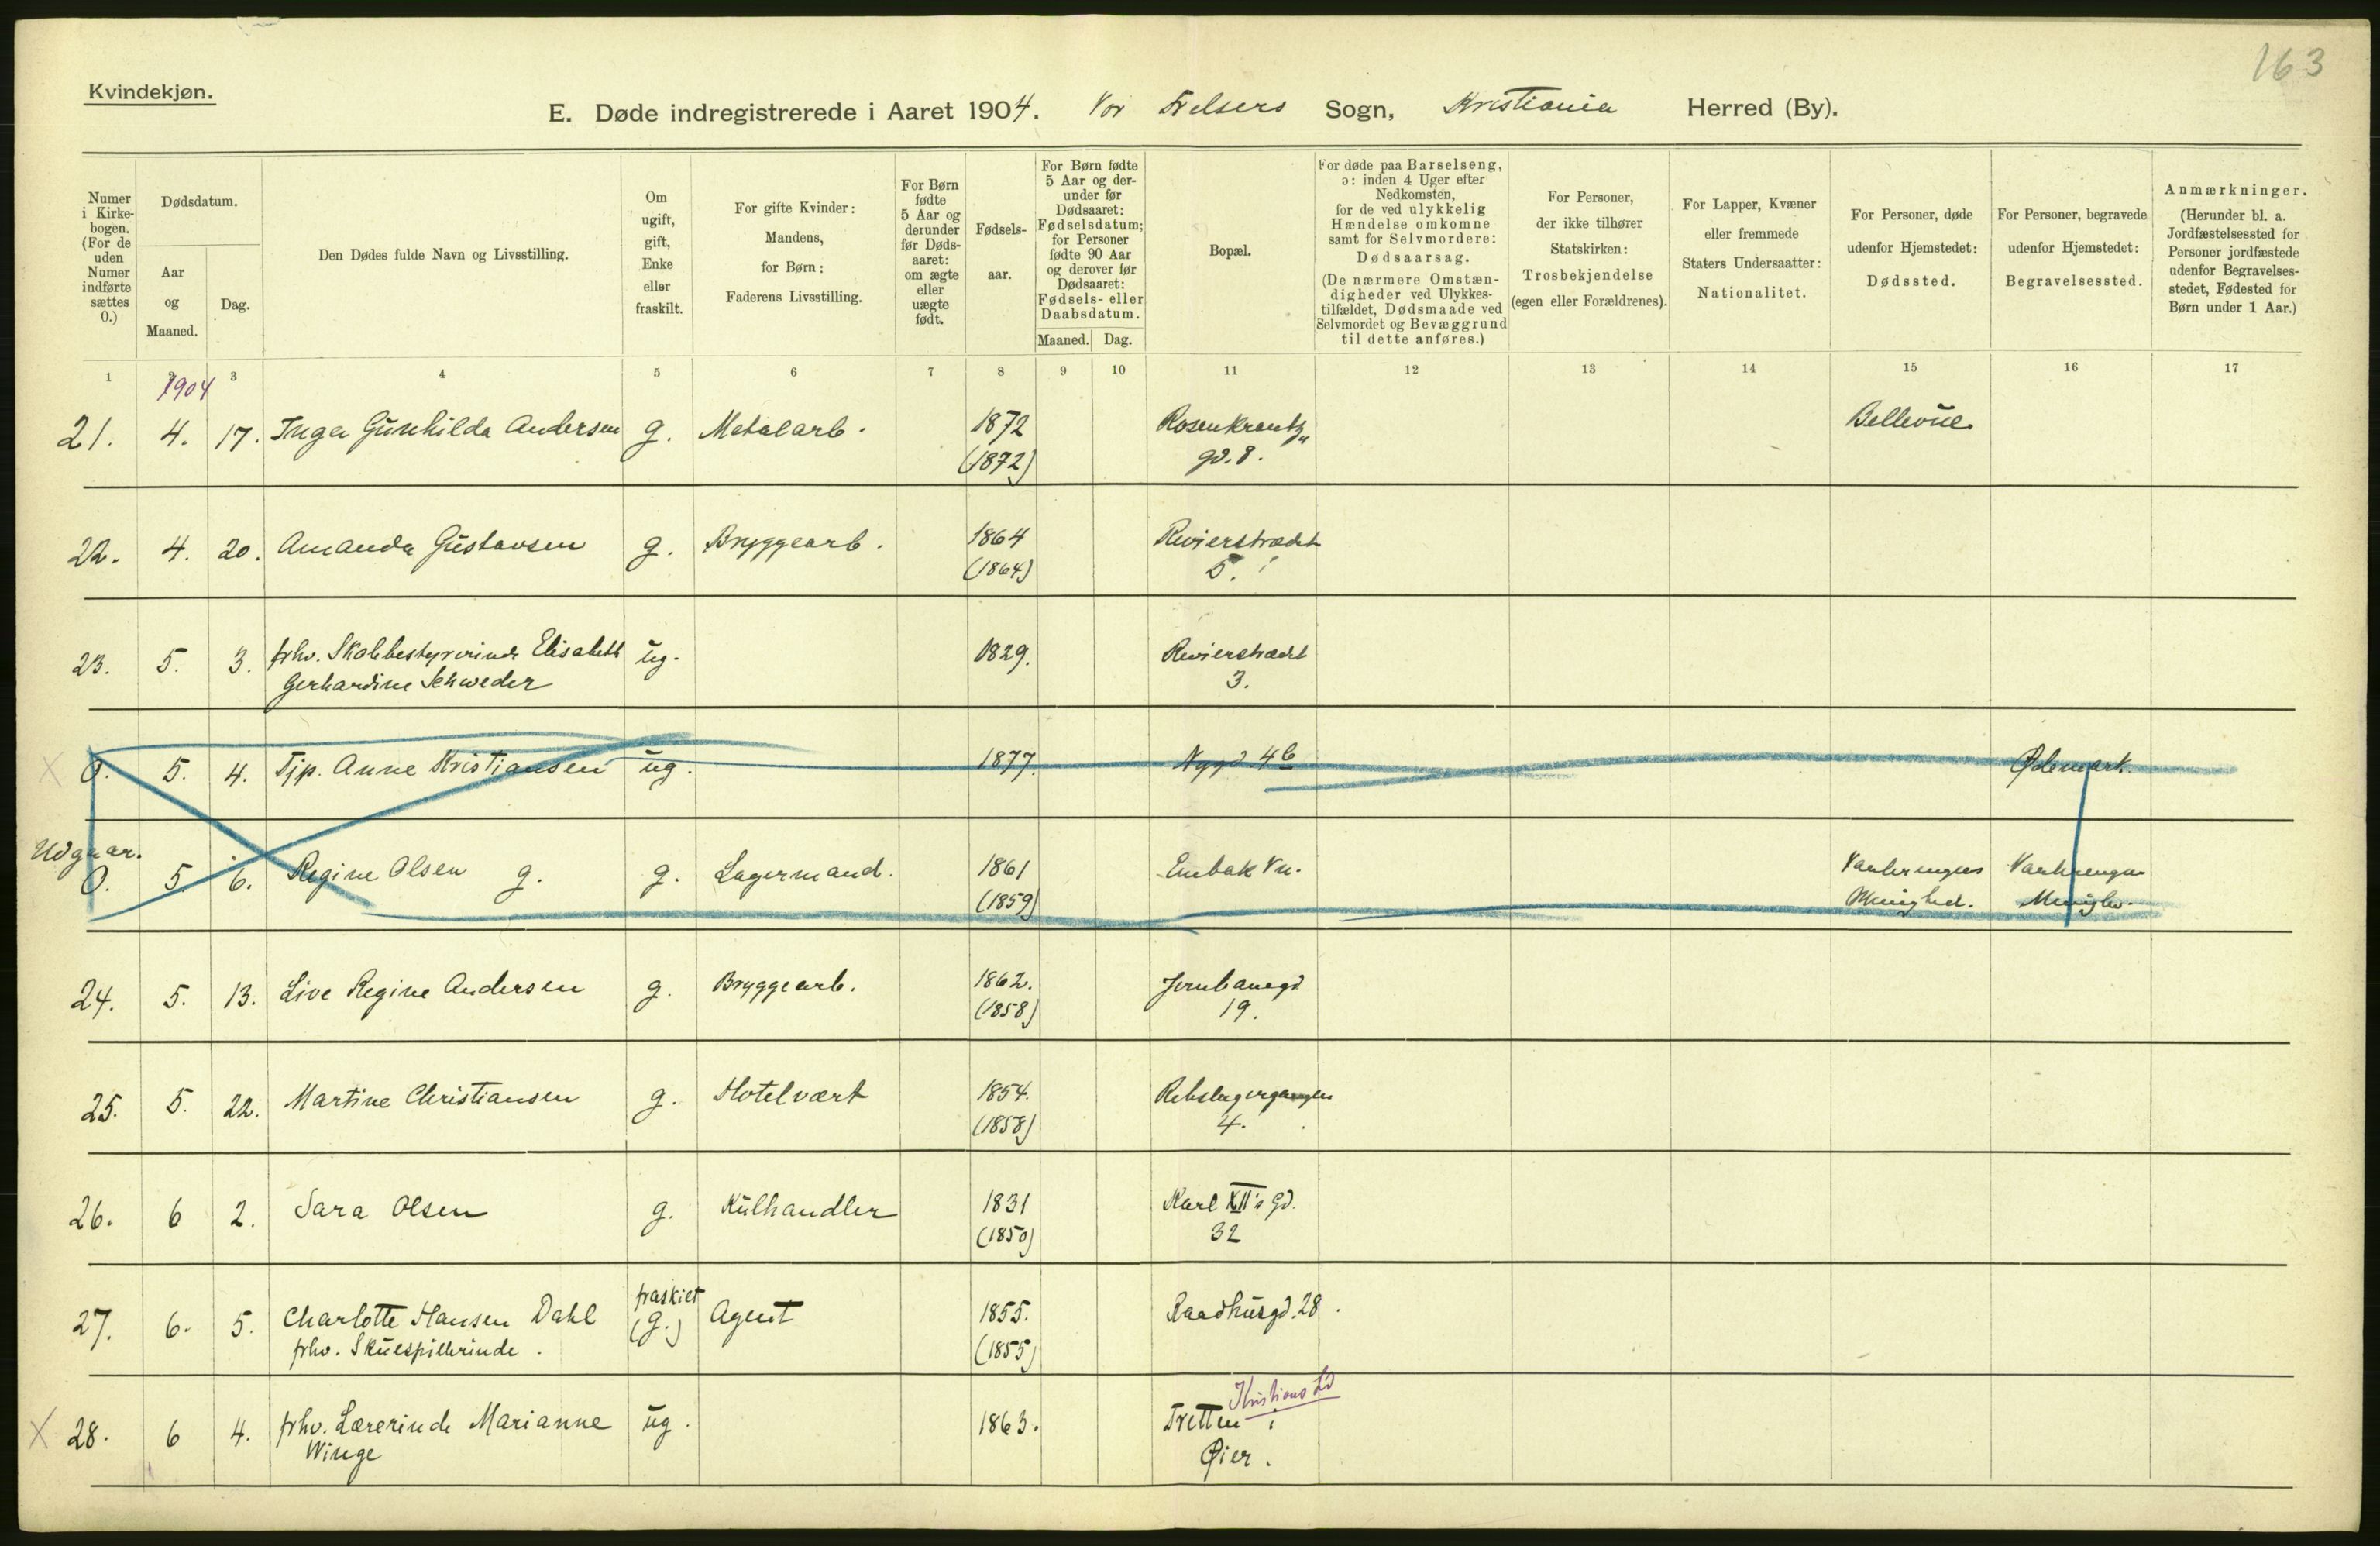 163
Kvindekjøn.
E. Døde indregistrerede i Aaret 1904. Vor Frelsers Sogn, Kristiania Herred (By).
Numer i Kirke-bogen. (For de uden Numer indførte sættes 0.)
Dødsdatum.
Aar og Maaned.
Dag.
Den Dødes fulde Navn og Livsstilling.
Om ugift, gift, Enke eller fraskilt.
For gifte Kvinder: Mandens, for Børn: Faderens Livsstilling.
For Børn fødte 5 Aar og derunder før Døds-aaret: om ægte eller uægte født.
Fødsels-aar.
For Børn fødte 5 Aar og der-under før Dødsaaret: Fødselsdatum; for Personer fødte 90 Aar og derover før Dødsaaret: Fødsels- eller Daabsdatum.
Maaned. Dag.
Bopæl.
For døde paa Barselseng, ɔ: inden 4 Uger efter Nedkomsten, for de ved ulykkelig Hændelse omkomne samt for Selvmordere: Dødsaarsag. (De nærmere Omstæn-digheder ved Ulykkes-tilfældet, Dødsmaade ved Selvmordet og Bevæggrund til dette anføres.)
For Personer, der ikke tilhører Statskirken: Trosbekjendelse (egen eller Forældrenes).
For Lapper, Kvæner eller fremmede Staters Undersaatter: Nationalitet.
For Personer, døde udenfor Hjemstedet: Dødssted.
For Personer, begravede udenfor Hjemstedet: Begravelsessted.
Anmærkninger. (Herunder bl. a. Jordfæstelsessted for Personer jordfæstede udenfor Begravelses-stedet, Fødested for Børn under 1 Aar.)
1 2 3 4 5 6 7 8 9 10 11 12 13 14 15 16 17
1904
21. 4. 17. Inga Gunhilda Andersen g. Metalarb. 1872 Rosenkrantz" Bellevue.
(1872) gd. 8.
22. 4. 20. Amanda Gustavsen g. Bryggearb. 1864 Revierstrædet
(1864) 5.
23. 5. 3. frhv. Skolebestyrerinde Elisabeth ug. 1829. Revierstrædet
Gerhardine Schweder 3.
X 0. 5. 4. Tjp. Anne Kristiansen ug. 1877. Nygd 4b Ødemark.
Udgaar.
0. 5. 6. Regine Olsen g. g. Lagermand. 1861 Enbak Vn.
(1859)
24. 5. 13. Live Regine Andersen g. Bryggearb. 1862. Jernbanegd
(1858) 19.
25. 5. 22. Martine Christiansen g. Hotelvært 1854. Rebslagergangen
(1858) 4.
26. 6 2. Sara Olsen g. Kulhandler 1831 Karl XII's gd.
(1850) 32
27. 6. 5. Charlotte Hansen Dahl fraskilt (g.) Agent 1855. Raadhusgd. 28.
frhv. Skuespillerinde. (1855)
Kristians
X 28. 6 4. frhv. Lærerinde Marianne ug. 1863. Tretten i
Winge Øier.